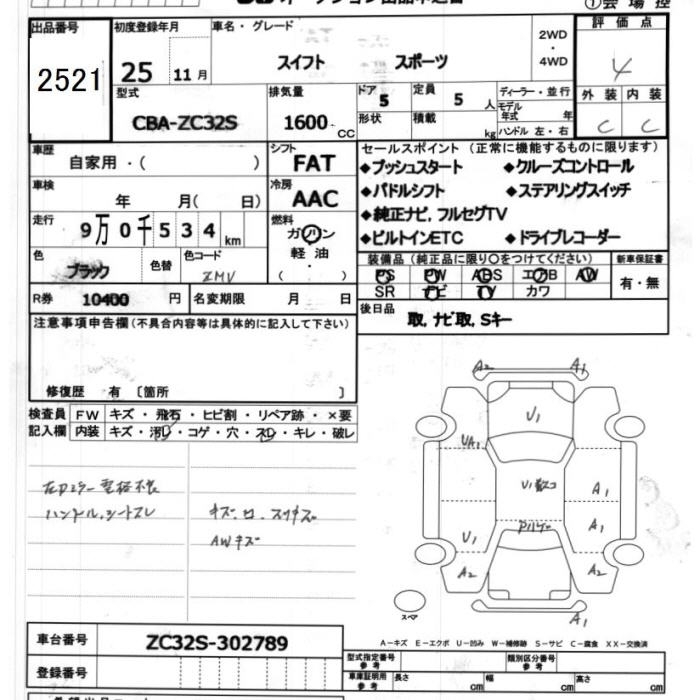 出品番号 初度登録年月 車名・グレード 2WD ・ 4WD 評価点
2521 25 11月 スイフト スポーツ 4
型式 排気量 ドア 定員 ディーラー・並行 外装 内装
CBA-ZC32S 1600 CC 5 5 人 モデル年式 年 C C
形状 積載 kg ハンドル 左・右
車歴 自家用・( ) シフト FAT
セールスポイント (正常に機能するものに限ります)
◆プッシュスタート ◆クルーズコントロール
車検 年 月( 日) 冷房 AAC
◆パドルシフト ◆ステアリングスイッチ
◆純正ナビ,フルセグTV
走行 9万0千534km 燃料 ガソリン
軽油・
( )
◆ビルトインETC ◆ドライブレコーダー
色 ブラック 色替 色コード ZMV
装備品 (純正品に限り○をつけてください) 新車保証書
PS PW ABS エアB AW 有・無
SR ナビ TV カワ
R券 10400 円 名変期限 月 日
後日品 取,ナビ取,Sキー
注意事項申告欄(不具合内容等は具体的に記入して下さい)
修復歴 有 〔箇所 〕
検査員 FW キズ・飛石・ヒビ割・リペア跡・×要
記入欄 内装 キズ・汚レ・コゲ・穴・スレ・キレ・破レ
左ドアミラー格不良
ハンドル,シートスレ
AWキズ
A2 A1
U1
UA1
A1
A1
U1
A2 A2
A1
スペア
A－キズ E－エクボ U－凹み W－補修跡 S－サビ C－腐食 XX－交換済
車台番号 ZC32S-302789
登録番号
型式指定番号 参考 類別区分番号 参考
車庫証明用 参考 長さ cm 幅 cm 高さ cm